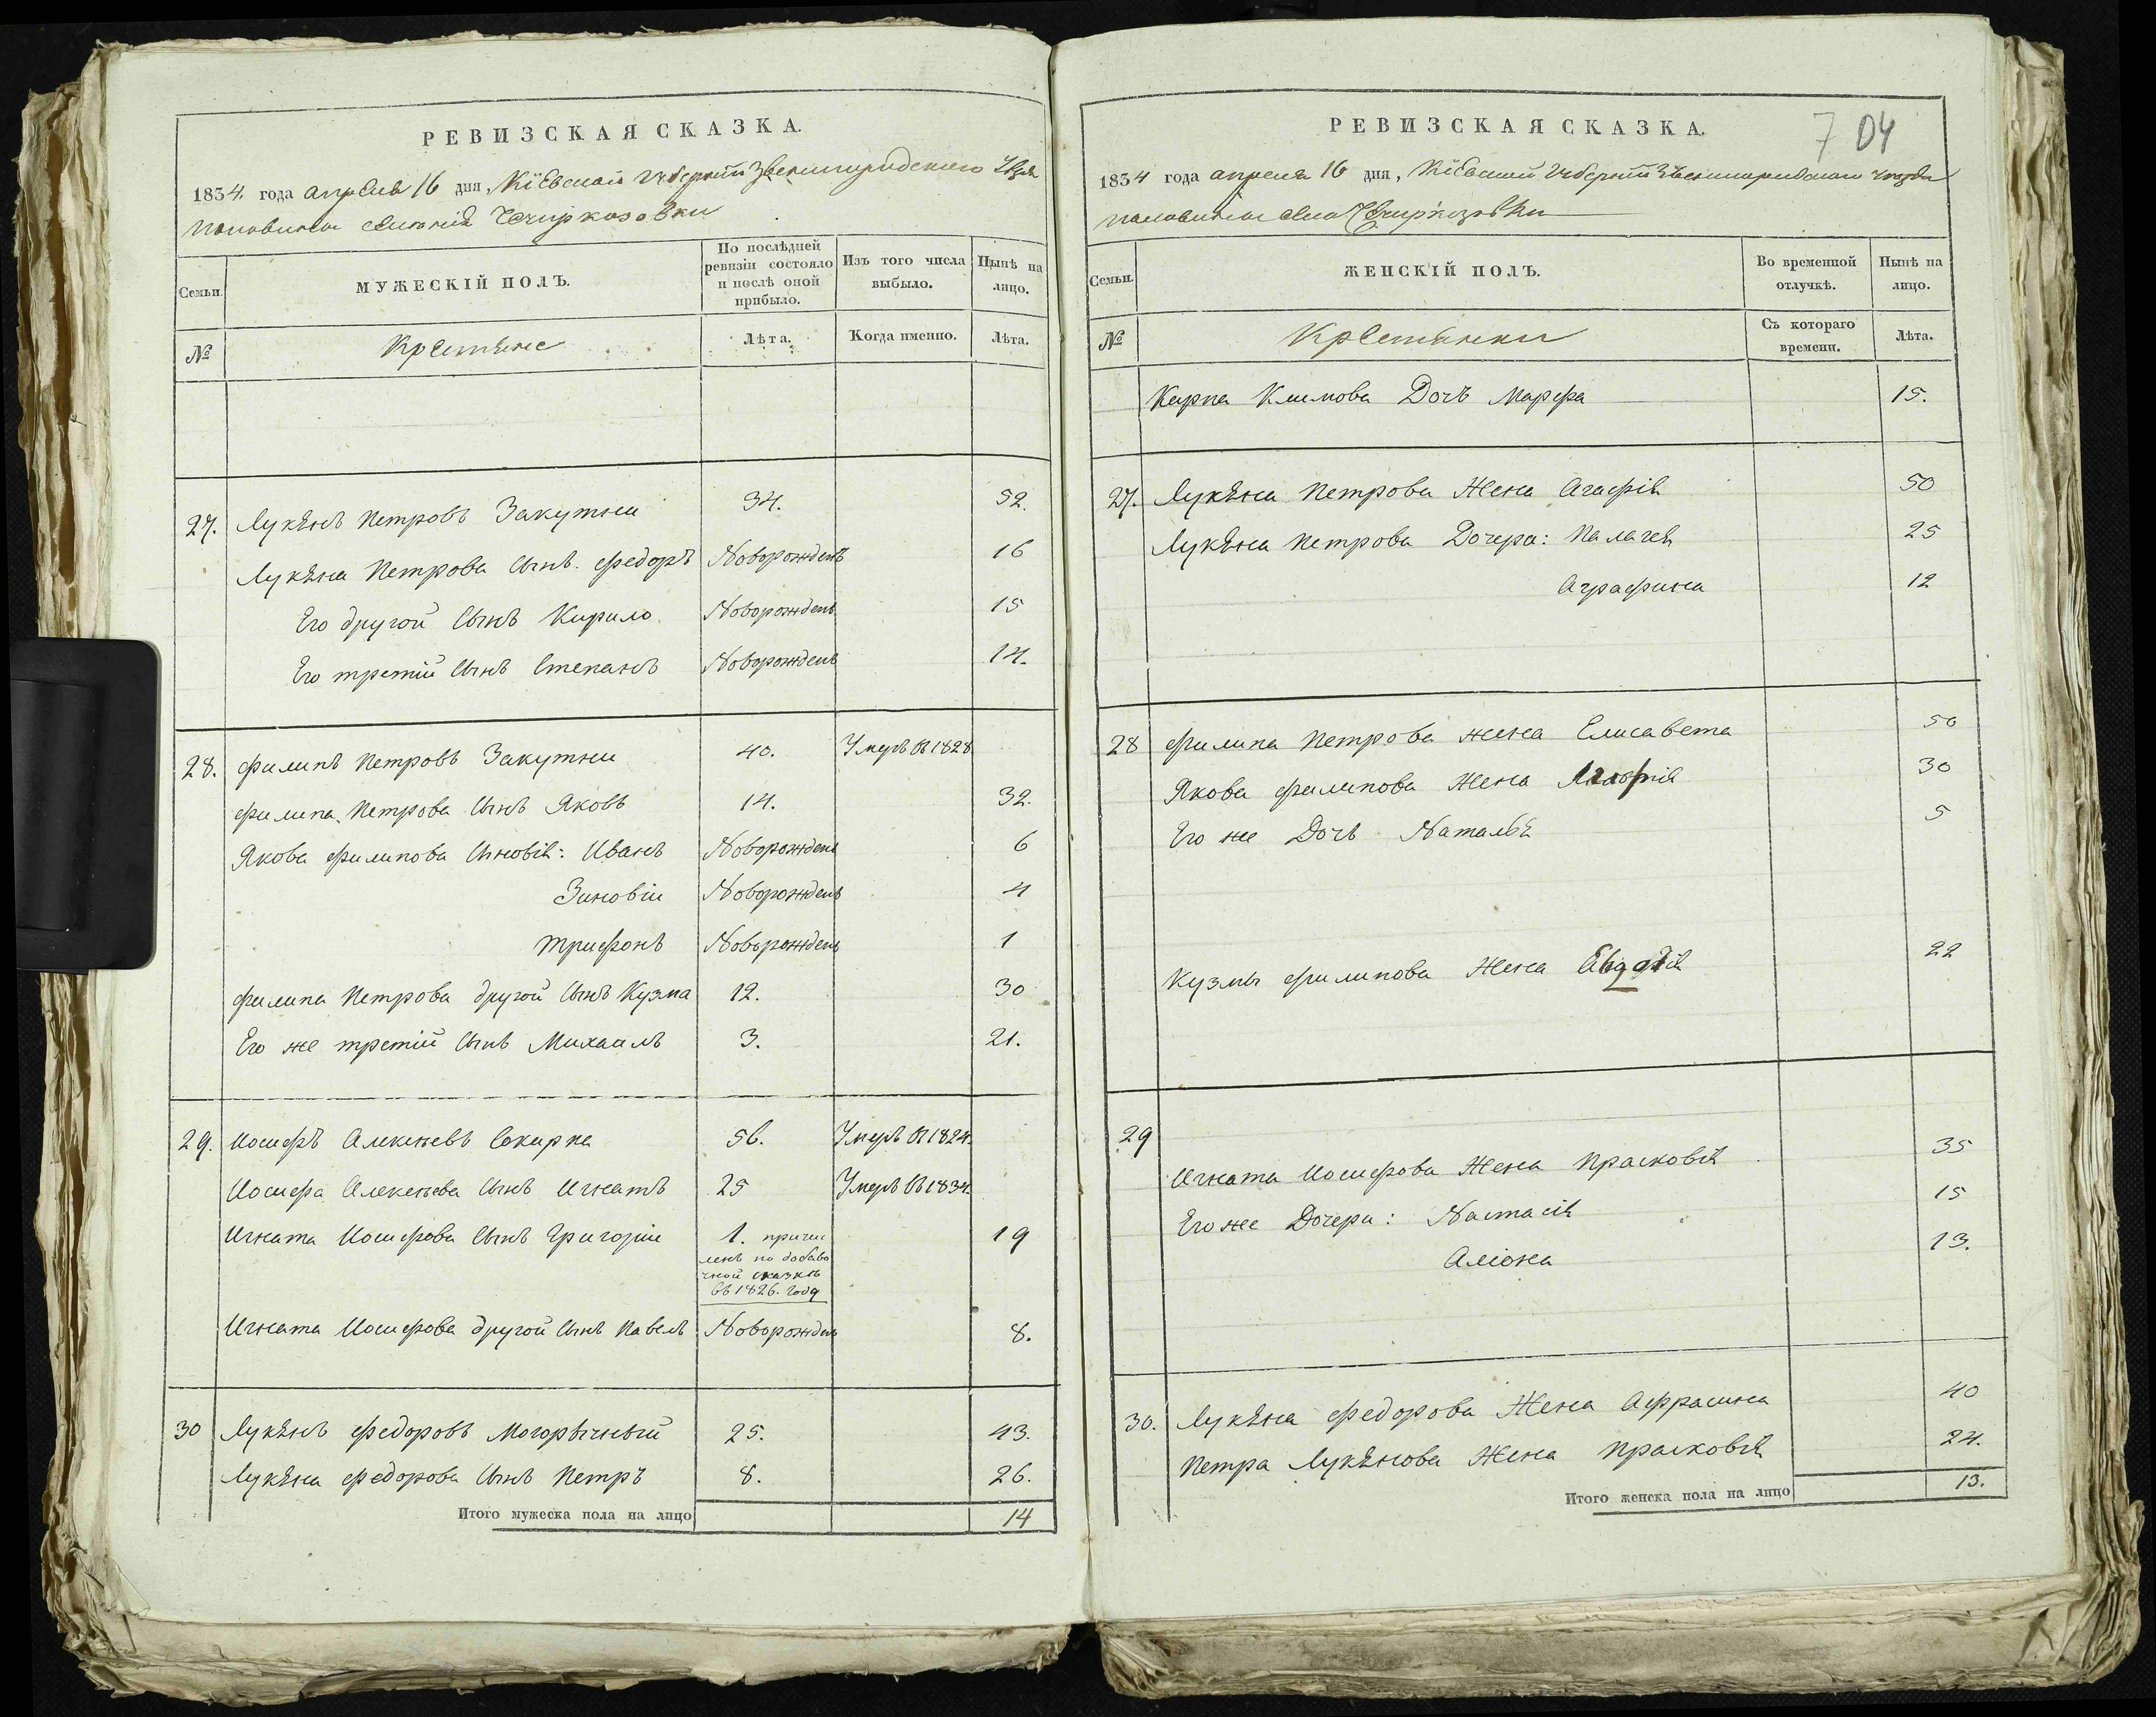 РЕВИЗСКАЯ СКАЗКА.
1834. года апреля 16 дня, Кіевской Губерніи Звенигородского
половины Чичиркозовки
Семьи.
МУЖЕСКІЙ ПОЛЪ.
По послѣдней ревизіи состояло и послѣ оной прибыло.
Изъ того числа выбыло.
Нынѣ на лицо.
№
Крестьяне
Лѣта.
Когда именно.
Лѣта.
27. Лукянъ Петровъ Закутни 34. 52.
Лукяна Петрова Сынъ Федоръ Новорожденъ 16
Его другой Сынъ Кирило Новорожденъ 15
Его третій Сынъ Степанъ Новорожденъ 14.
28. Филипъ Петровъ Закутни 40. Умеръ въ 1828
Филипа Петрова Сынъ Яковъ 14. 32.
Якова Филипова Сыновія: Иванъ Новорожденъ 6
Зиновіи Новорожденъ 4
Трифонъ Новорожденъ 1
Филипа Петрова другой Сынъ Кузма 12. 30
Его же третій Сынъ Михаилъ 3. 21.
29. Иосифъ Алексеевъ Сокирка 56. Умеръ въ 1824.
Иосифа Алексеева Сынъ Игнатъ 25 Умеръ въ 1834.
Игната Иосифова Сынъ Григоріи 1. причис 19
ленъ по добаво
чной сказкѣ
въ 1826. году
Игната Иосифова другой Сынъ Павелъ Новорожденъ 8.
30 Лукянъ Федоровъ Могорычный 25. 43.
Лукяна Федорова Сынъ Петръ 8. 26.
Итого мужеска пола на лицо 14
704
РЕВИЗСКАЯ СКАЗКА.
1834 года апреля 16 дня, Кіевской Губерніи Звенигородского уезда
половины села Чичиркозовки
Семьи.
ЖЕНСКІЙ ПОЛЪ.
Во временной отлучкѣ.
Нынѣ на лицо.
№
Крестянки
Съ котораго времени.
Лѣта.
Карпа Климова Дочъ Марфа 15.
27. Лукяна Петрова Жена Агафія 50
Лукяна Петрова Дочери: Палагея 25
Аграфина 12
28 Филипа Петрова жена Елисавета 50
Якова Филипова Жена 30
Его же Дочъ Наталья 5
Кузмы Филипова Жена Евдокія 22
29
Игната Иосифова Жена Прасковія 35
Его же Дочери: Настасія 15
Аліона 13.
30. Лукяна Федорова Жена Афрасина 40
Петра Лукянова Жена Прасковія 24.
Итого женска пола на лицо 13.